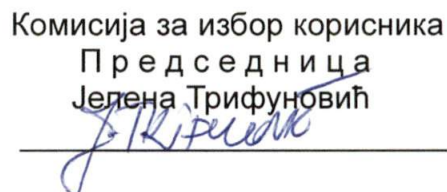 Комисија за избор корисника
Председница
Јелена Трифуновић